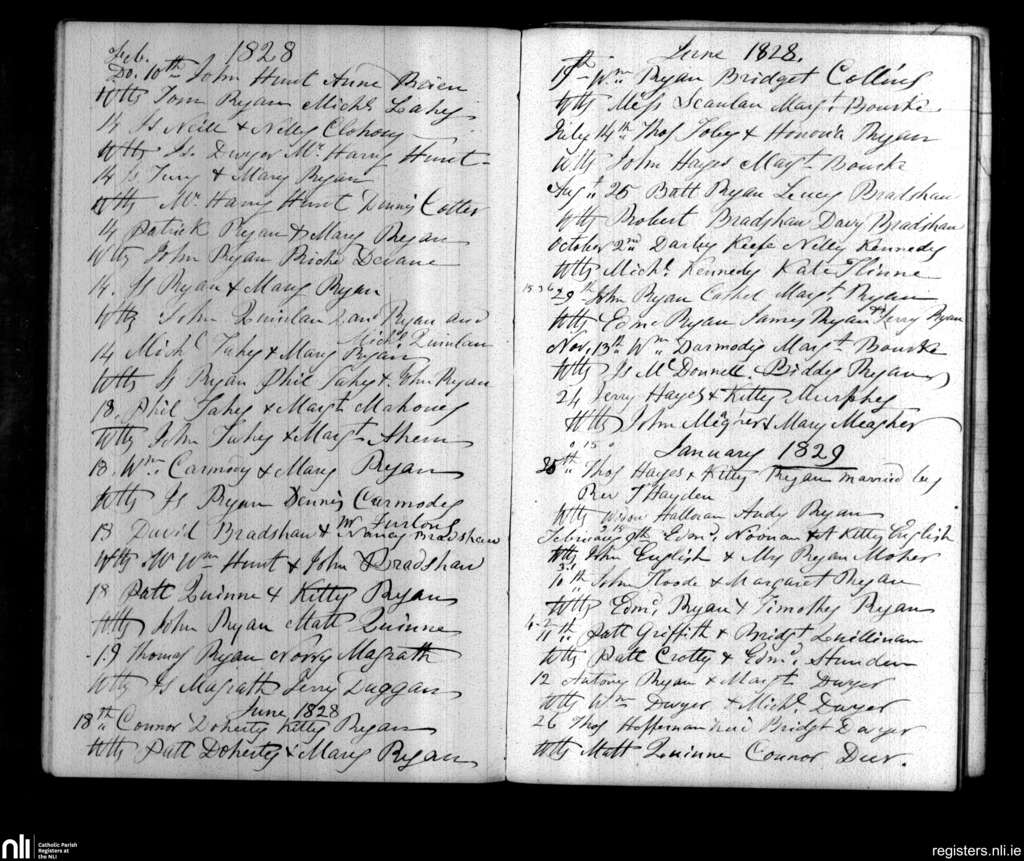 Feb. 1828
Do. 10th John Hunt Anne Brien
Wtts Tom Ryan Michl Lahey
14 Js Neill & Nelly Clohony
Wtts Js. Dwyer Mr. Harry Hunt
14 Js Tury & Mary Ryan
Wtts Mr Harry Hunt Dennis Cotter
14 Patrick Ryan & Mary Ryan
Wtts John Ryan Devane
14. Js Ryan & Mary Ryan
Wtts John Quinlan Ryan and
Michl Quinlan
14 Michl Fahey & Mary Ryan
Wtts Js Ryan Phil Fahey & John Ryan
18. Phil Fahey & Margt Mahoney
Wtts John Fahey & Margt Ahern
18. Wm Carmody & Mary Ryan
Wtts Js Ryan Dennis Carmody
Mr Furlong
18 David Bradshaw & Nancy Bradshaw
Wtts Wm Hunt & John Bradshaw
18 Patt Quinne & Kitty Ryan
Wtts John Ryan Matt Quinne
19 Thomas Ryan Norry Magrath
Wtts Js Magrath Jerry Duggan
June 1828
18th Connor Doherty Kitty Ryan
Wtts Patt Doherty & Mary Ryan
June 1828.
19th Wm Ryan Bridget Collins
Wtts Miss Scanlan Margt Bourke
July 14th Thos Foley & Honoria Ryan
Wtts John Hayes Margt Bourke
Augt 25 Batt Ryan Lucy Bradshaw
Wtts Robert Bradshaw Davy Bradshaw
October 2nd Darby Keefe Nelly Kennedy
Wtts Michl Kennedy Kate Flinne
29th John Ryan Cashel Margt Ryan
Wtts Edmd Ryan James Ryan Jerry Ryan
Nov. 13th Wm Darmody Margt Bourke
Wtts Js McDonnell Biddy Ryan
24 Jerry Hayes & Kitty Murphy
Wtts John & Mary Meagher
January 1829
25th Thos Hayes & Kitty Ryan married by
Rev T Hayden
Wtts Widow Halloran Andy Ryan
February 9th Edmd. Noonan & Kitty English
Wtts John English & My Ryan Moher
10th John Floode & Margaret Ryan
Wtts Edmd. Ryan & Timothy Ryan
11th Patt Griffith & Bridgt Quillinan
Wtts Patt Crotty & Edmd.
12 Antony Ryan & Margt Dwyer
Wtts Wm Dwyer & Michl Dwyer
26 Thos Heffernan Bridgt Dwyer
Wtts Matt Quinne Connor Deer.
nli
Catholic Parish
Registers at
the NLI
registers.nli.ie